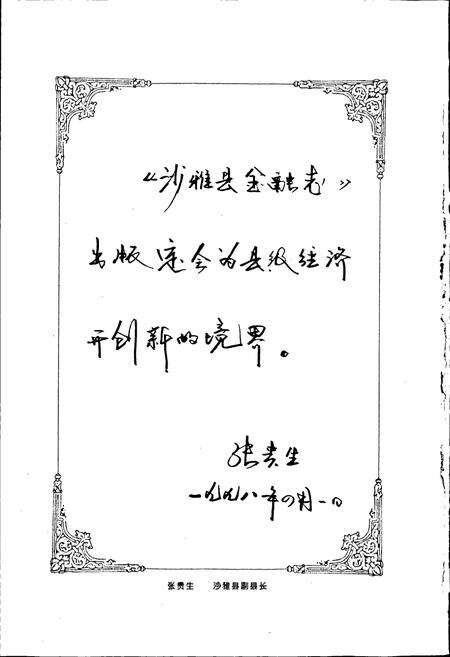 《沙雅县金融志》
出版定会为县级经济
开创新的境界。
张贵生
一九九八年四月一日
张贵生 沙雅县副县长